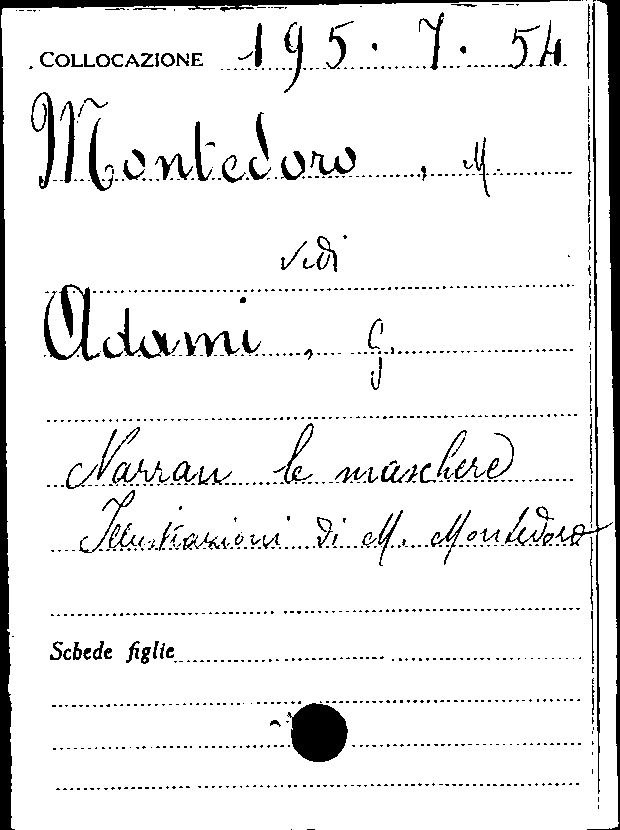 COLLOCAZIONE 195. 7. 54
Montedoro, M.
vedi
Adami, G.
Narran le maschere
Illustrazioni di M. Montedoro
Schede figlie